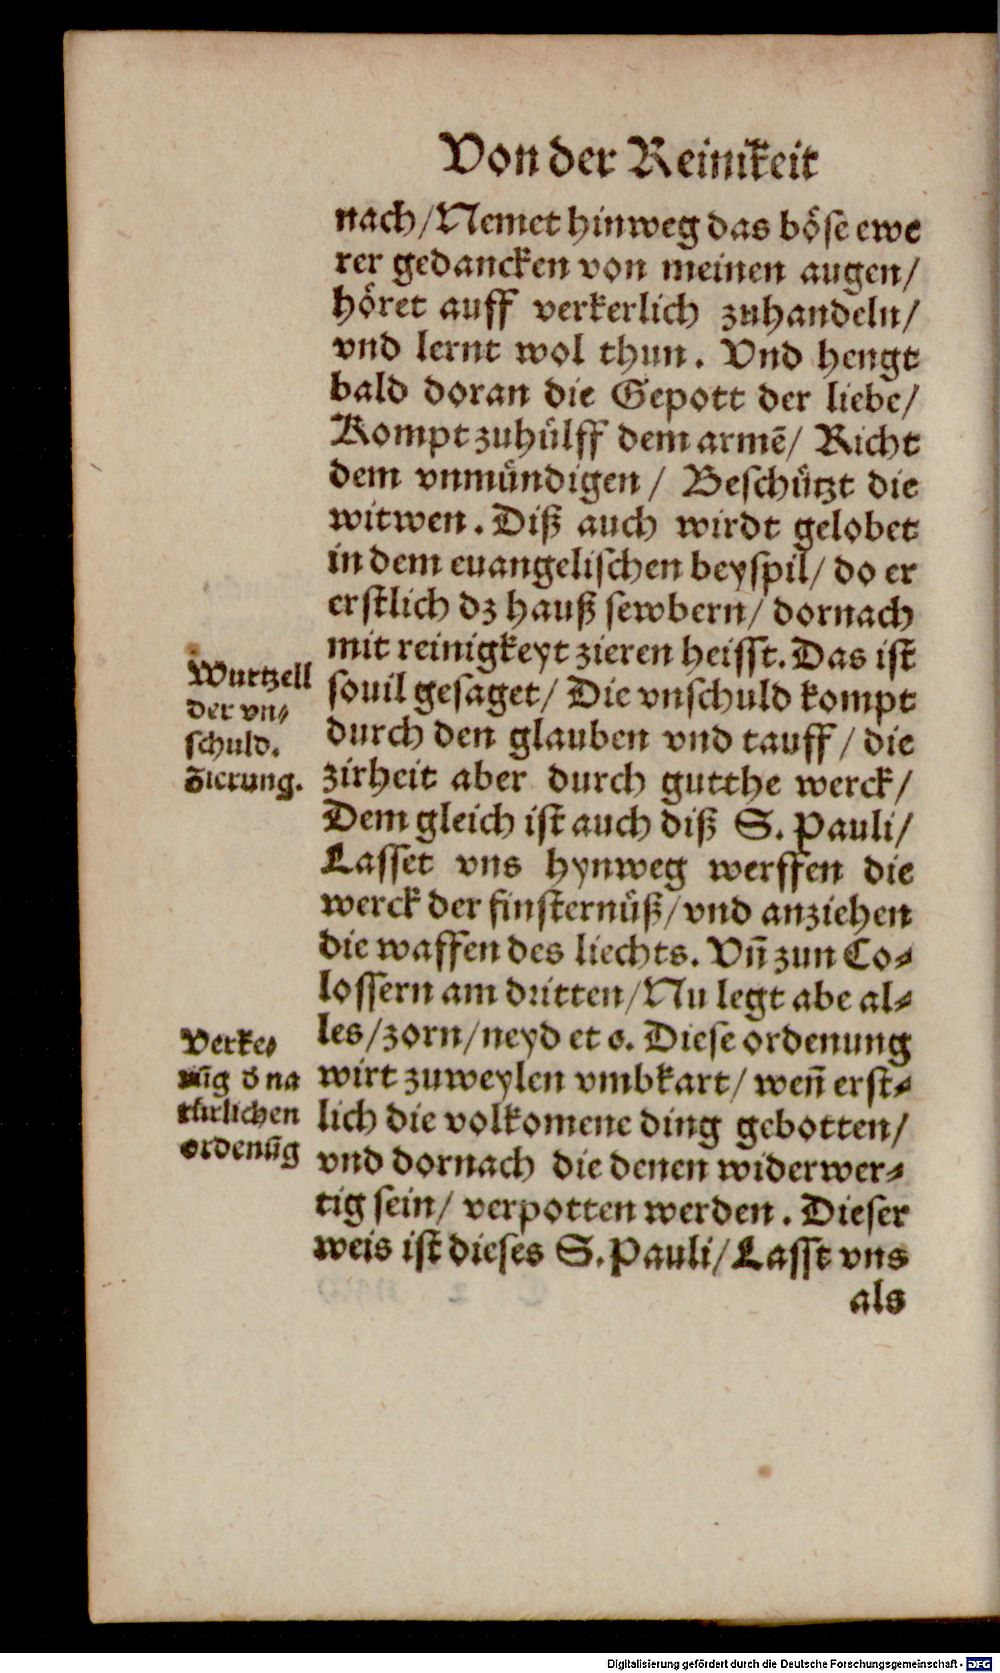 Von der Reinikeit
nach/Nemet hinweg das böse ewe
rer gedancken von meinen augen/
höret auff verkerlich zuhandeln/
vnd lernt wol thun. Vnd hengt
bald doran die Gepott der liebe/
Kompt zuhülff dem armē/ Richt
dem vnmündigen / Beschützt die
witwen. Diß auch wirdt gelobet
in dem euangelischen beyspil/ do er
erstlich dz hauß sewbern/ dornach
mit reinigkeyt zieren heisst. Das ist
souil gesaget/ Die vnschuld kompt
durch den glauben vnd tauff / die
zirheit aber durch gutthe werck/
Dem gleich ist auch diß S. Pauli/
Lasset vns hynweg werffen die
werck der finsternüß/vnd anziehen
die waffen des liechts. Vn̄ zun Co⸗
lossern am dritten/Nu legt abe al⸗
les/zorn/neyd et c. Diese ordenung
wirt zuweylen vmbkart/ wen̄ erst⸗
lich die volkomene ding gebotten/
vnd dornach die denen widerwer⸗
tig sein/ verpotten werden. Dieser
weis ist dieses S. Pauli/Lasst vns
als
Wurtzell
der vn⸗
schuld.
Zierung.
Verke⸗
rūg d na
türlichen
ordenūg
Digitalisierung gefördert durch die Deutsche Forschungsgemeinschaft - DFG